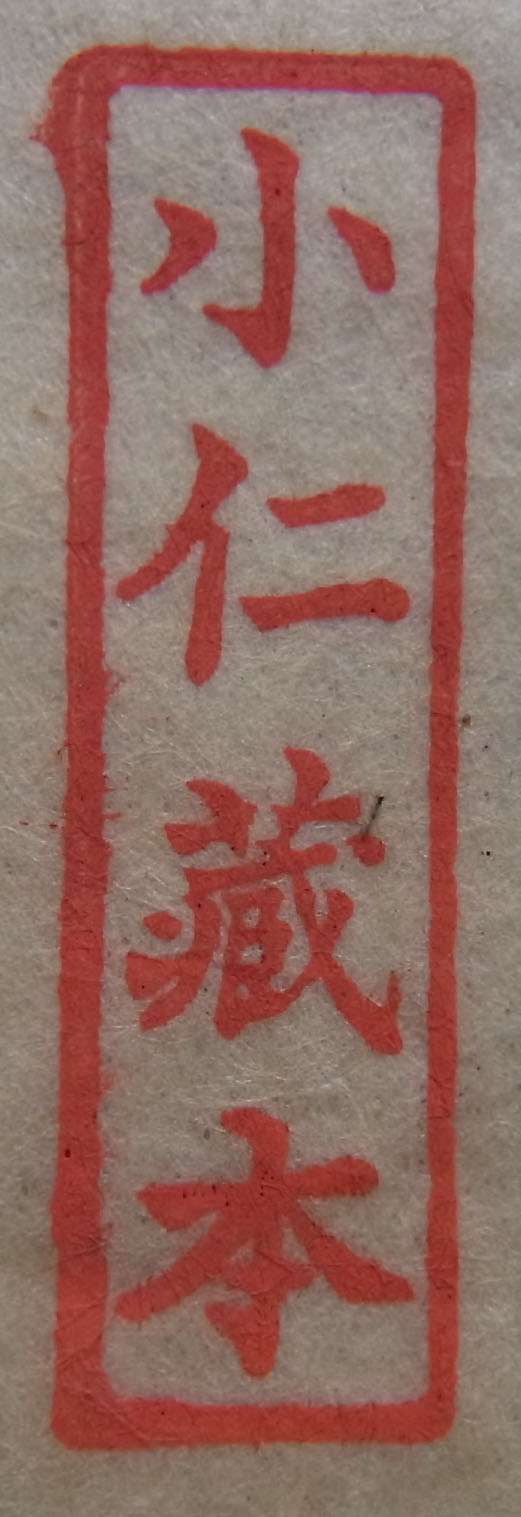 小仁藏本